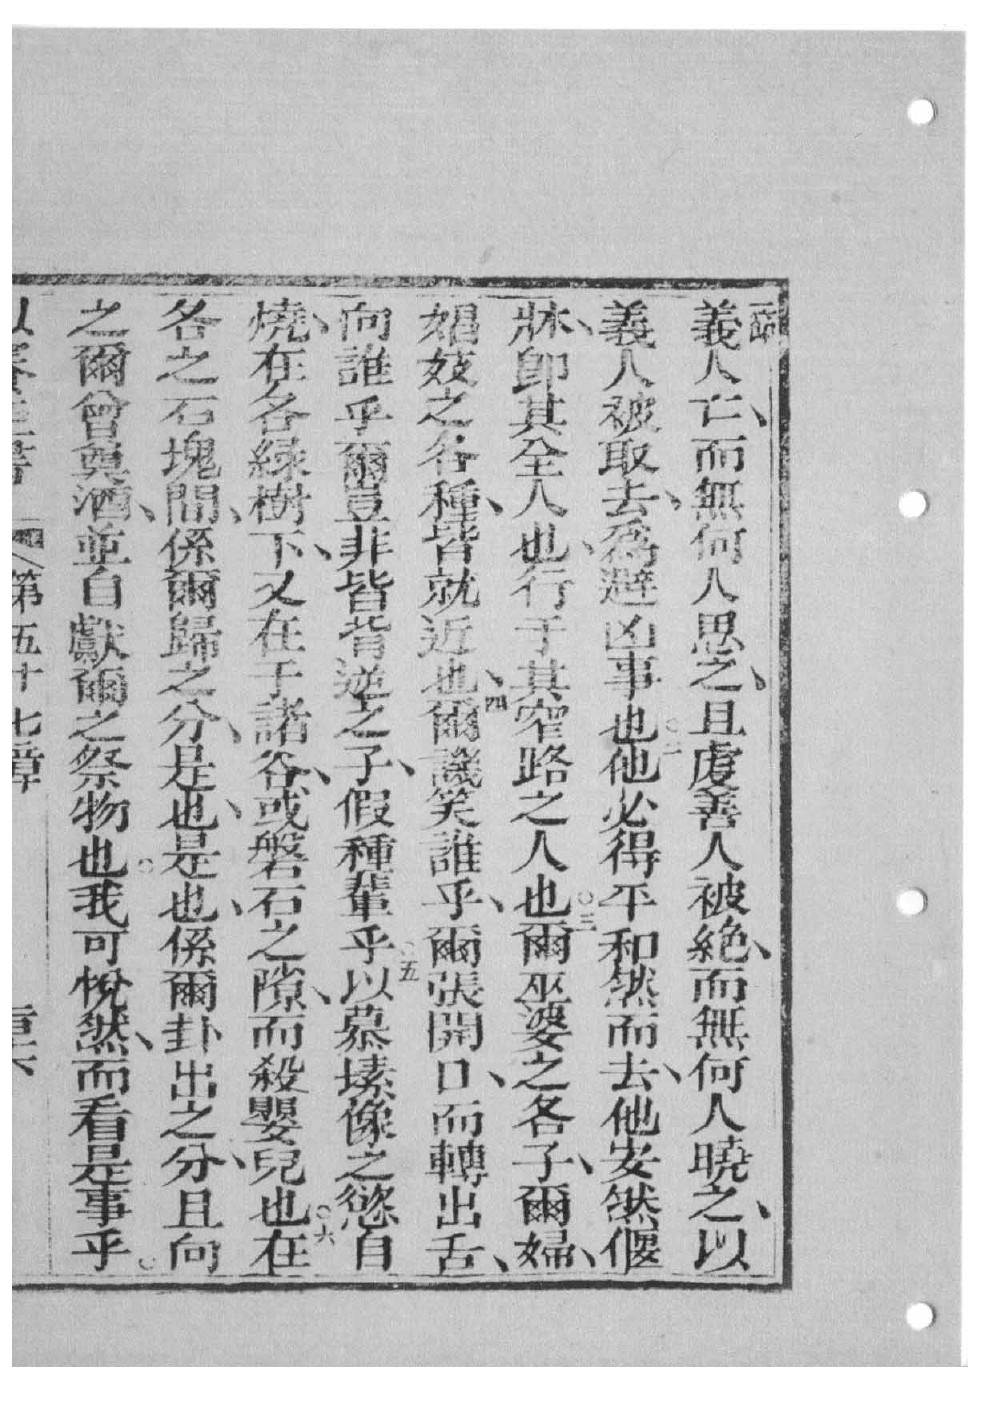 義人亡、而無何人思之、且虔善人被絶、而無何人曉之、以
義人被取去、爲避凶事也○二他必得平和然而去、他安然偃
牀、卽其全人也、行于其窄路之人也○三爾巫婆之各子、爾婦、
娼妓之各種、皆就近也、四爾譏笑誰乎、爾張開口、而轉出舌、
向誰乎爾豈非皆背逆之子、假種輩乎○五以慕塑像之慾自
燒、在各緑樹下、又在于諸谷、或磐石之隙、而殺嬰兒也○六在
各之石塊間、係爾歸之分、是也、是也、係爾卦出之分、且向
之爾曾奠酒、並自獻爾之祭物也○我可悅然、而看是事乎○
第五十七章